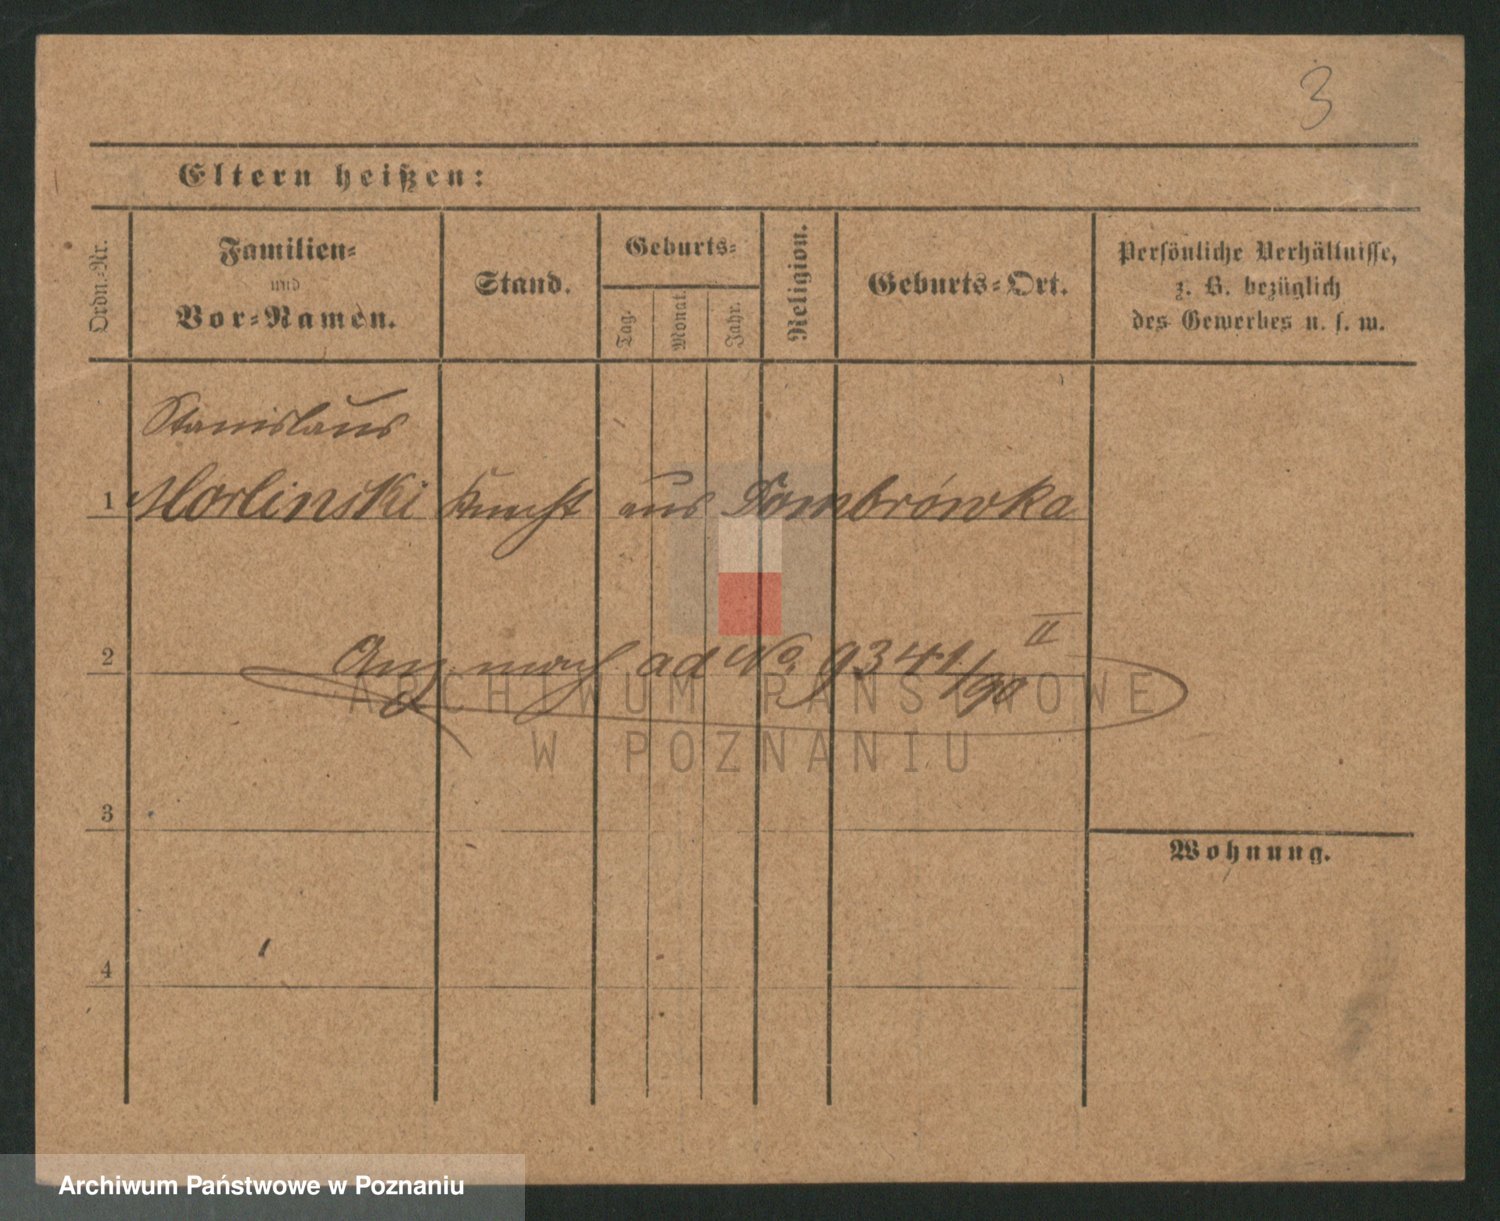 3
Eltern heißen:
Ordn.-Nr.
Familien-
und
Vor-Namen.
Stand.
Geburts-
Tag.
Monat.
Jahr.
Religion.
Geburts-Ort.
Persönliche Verhältnisse,
z. B. bezüglich
des Gewerbes u. s. w.
Stanislaus
1 Morlinski Knecht aus Dombrówka
2 ad No. 9341/90 II
3
Wohnung.
4
ARCHIWUM PAŃSTWOWE
W POZNANIU
Archiwum Państwowe w Poznaniu